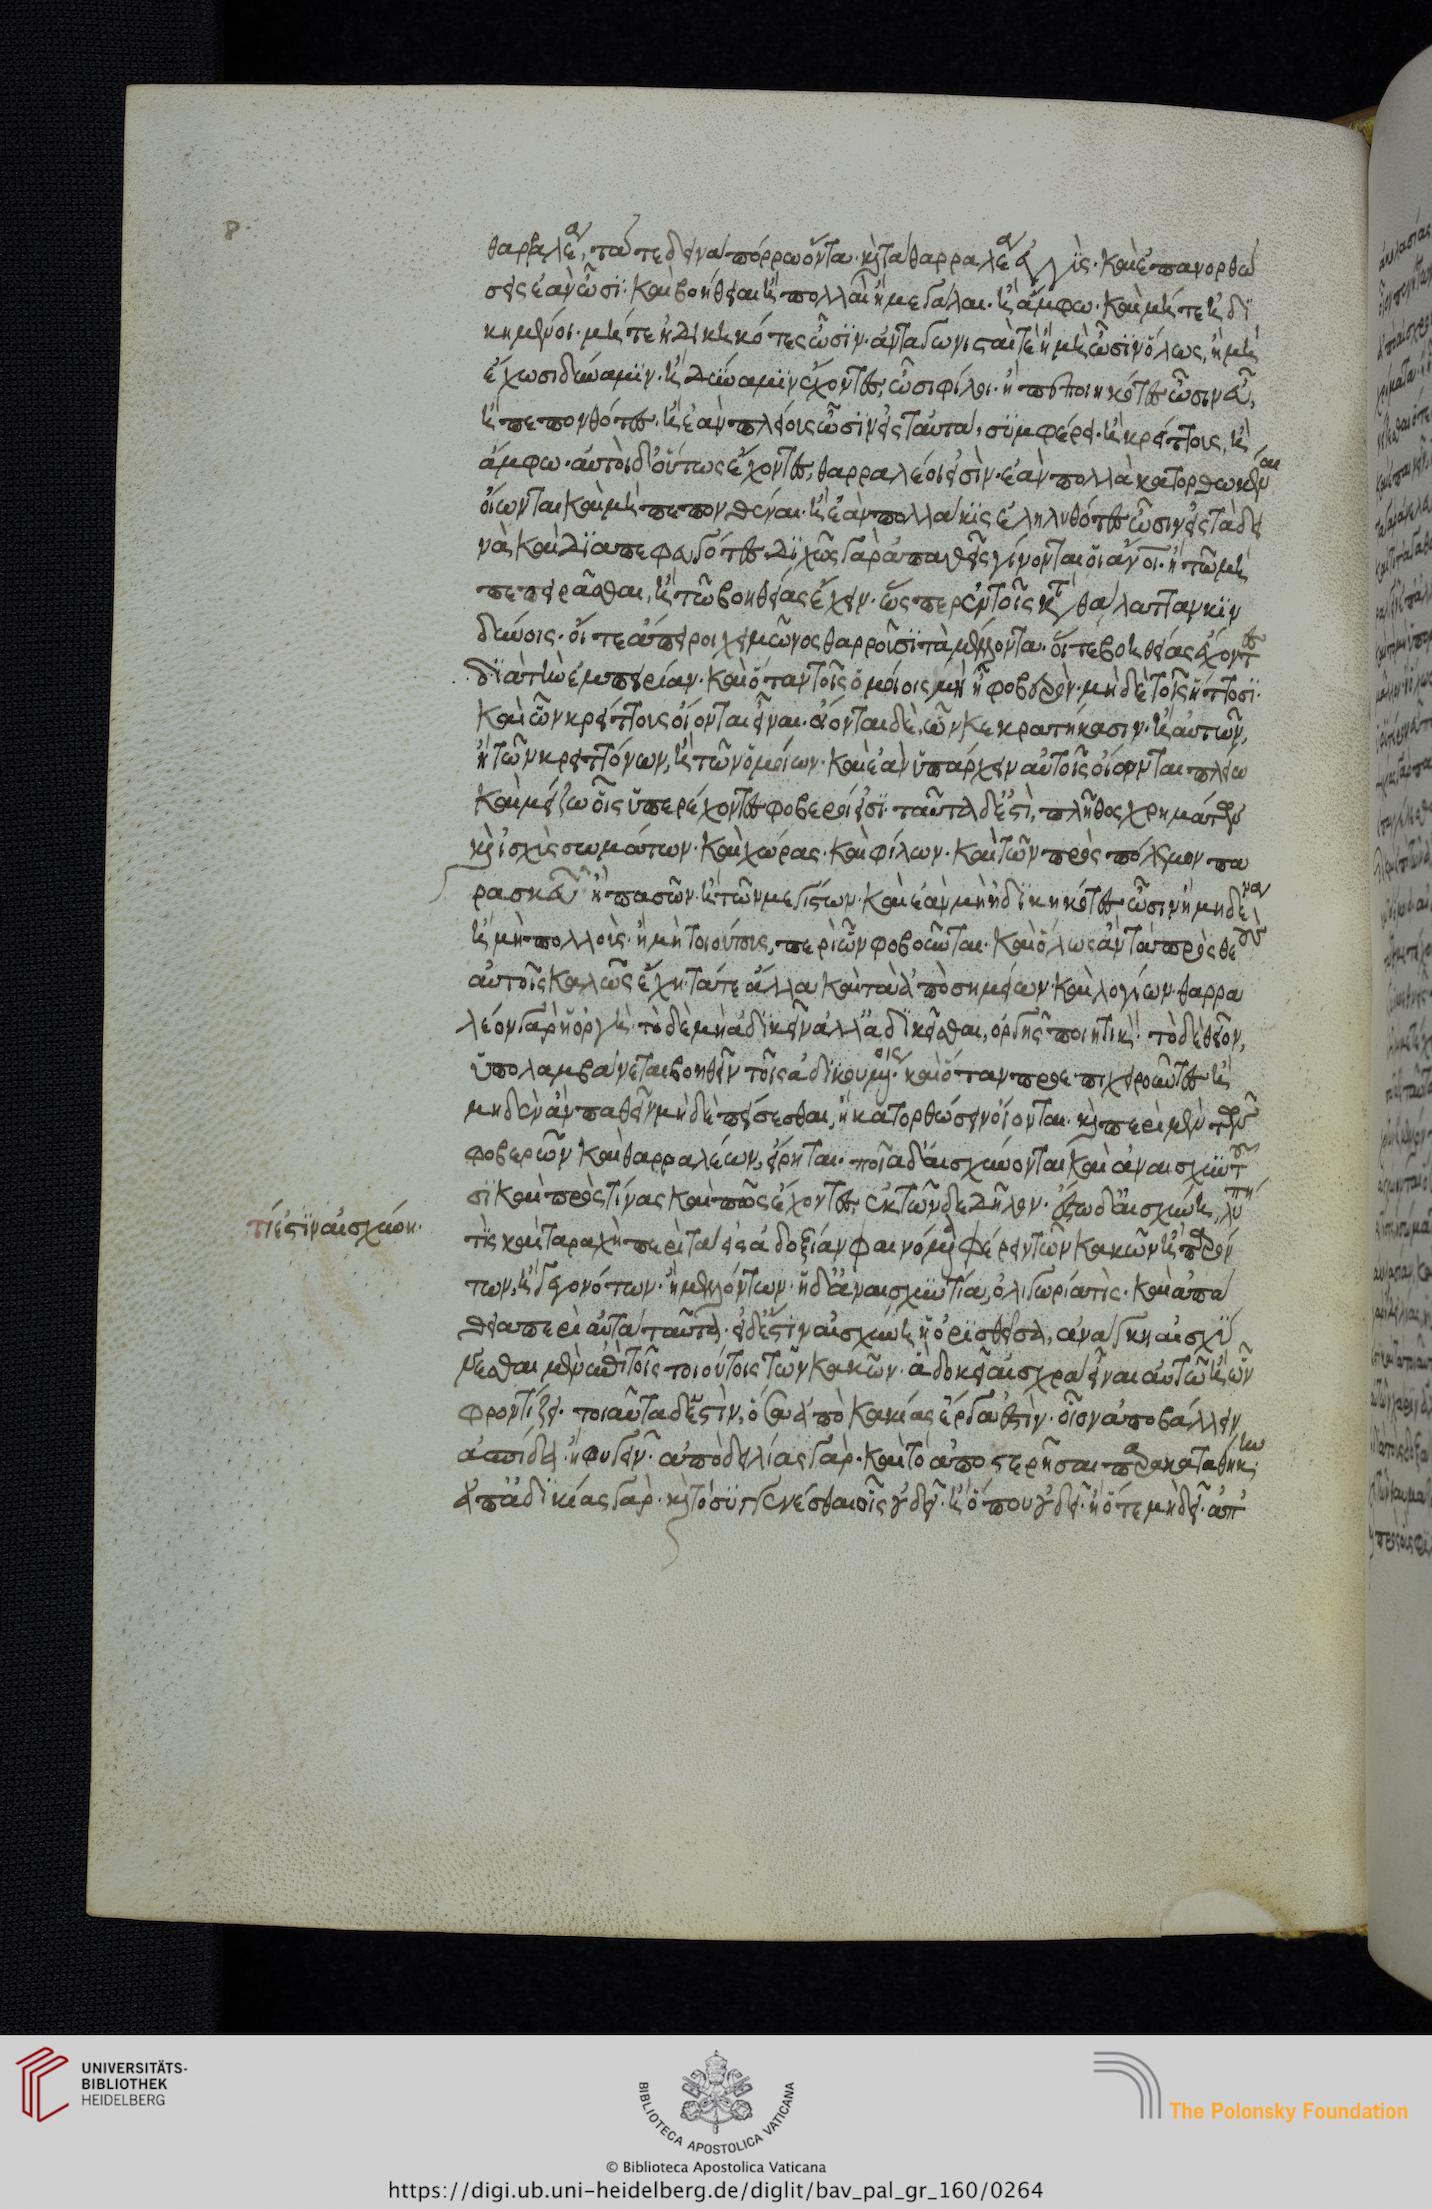 θαρραλέα, τά τε δεινὰ πόρρω ὄντα· καὶ τὰ θαρραλέα ἐγγὺς· καὶ ἐπανορθώ
σεις ἐὰν ὦσϊ· καὶ βοήθειαι ἢ πολλαὶ ἢ μεγάλαι· ἢ ἄμφω· καὶ μήτε ἠδϊ
κημένοι· μήτε ἠδικηκότες ὦσϊν· ἀνταγωνισταὶ τὲ ἢ μὴ ὦσϊν ὅλως, ἢ μὴ
ἔχωσι δύναμϊν· ἢ δύναμϊν ἔχοντες, ὦσι φίλοι· ἢ πεποιηκότες ὦσιν εὖ,
ἢ πεπονθότες· ἢ ἐὰν πλείοις ὦσϊν εἰς ταῦτα, σϋμφέρει· ἢ κρείττοις, ἢ
ἄμφω· αὐτοὶ δ' οὕτως ἔχοντες, θαρραλέοι εἰσὶν· ἐὰν πολλὰ κατορθωκέναι
οἴωνται καὶ μὴ πεπονθέναι· ἢ ἐὰν πολλάκϊς ἐληλυθότες ὦσιν εἰς τὰ δει
νὰ, καὶ δϊαπεφευγότες· δϊχῶς γὰρ ἀπαθεῖς γίνονται οἱ ἄνοι· ἢ τῶ μὴ
πεπειρᾶσθαι, ἢ τῶ βοηθείας ἔχειν· ὥσπερ ἐν τοῖς κτ θάλατταν κϊν
δύνοις· οἵ τε ἄπειροι χειμῶνος θαρροῦσϊ τὰ μέλλοντα· οἵ τε βοηθείας ἔχοντες
δϊὰ τὴν ἐμπειρίαν· καὶ ὅταν τοῖς ὁμοίοις μὴ ἦ φοβερὸν· μηδὲ τοῖς ἥττοσϊ·
καὶ ὧν κρείττοις οἴονται εἶναι· οἴονται δὲ, ὧν κεκρατήκασιν· ἢ αὐτῶν,
ἢ τῶν κρειττόνων, ἢ τῶν ὁμοίων· καὶ ἐὰν ὑπάρχειν αὐτοῖς οἴονται πλείω
καὶ μείζω οἷς ὑπερέχοντες φοβεροί εἰσϊ· ταῦτα δέ ἐστι, πλῆθος χρημάτων
καὶ ἰσχὺς σωμάτων· καὶ χώρας· καὶ φίλων· καὶ τῶν πρὸς πόλεμον πα
ρασκευῶν ἢ πασῶν· ἢ τῶν μεγίστων· καὶ ἐὰν μὴ ἠδϊκηκότες ὦσιν ἢ μηδένα
ἢ μὴ πολλοὶς· ἢ μὴ τοιούτοις, περὶ ὧν φοβοῦνται· καὶ ὅλως ἂν τὰ πρὸς θεοὺς
αὐτοῖς καλῶς ἔχη· τά τε ἄλλα καὶ τὰ ἀπὸ σημείων· καὶ λογίων· θαρρα
λέον γὰρ ἡ ὀργὴ· τὸ δὲ μὴ ἀδϊκεῖν ἀλλ' ἀδϊκεῖσθαι, ὀργῆς ποιητικὴ· τὸ δὲ θεῖον,
ὑπολαμβάνεται βοηθεῖν τοῖς ἀδϊκουμένοις· καὶ ὅταν προεπιχειροῦντες ἢ
μηδὲν ἂν παθεῖν μηδὲ πείσεσθαι, ἢ κατορθώσειν οἴονται· καὶ περὶ μὲν τῶν
φοβερῶν καὶ θαρραλέων, εἴρηται· ποῖα δ' αἰσχύνονται καὶ ἀναισχϋντοῦ
σϊ καὶ πρὸς τίνας καὶ πῶς ἔχοντες, ἐκ τῶνδε δῆλον· ἔστω δ' αἰσχύνη, λύπη
τὶς καὶ ταραχὴ περὶ τὰ εἰς ἀδοξίαν φαινόμενα φέρειν τῶν κακῶν ἢ παρόν
των, ἢ γεγονότων· ἢ μελλόντων· ἡ δ' ἀναισχϋντία, ὀλιγωρία τὶς· καὶ ἀπά
θεια περὶ αὐτὰ ταῦτα· εἰ δέ ἐστϊν αἰσχύνη ἡ ὁρισθεῖσα, ἀνάγκη αἰσχϋ
νεσθαι μὲν ἐπὶ τοῖς τοιούτοις τῶν κακῶν· ἃ δοκεῖ αἰσχρὰ εἶναι αὐτῶ ἢ ὧν
φροντίζει· τοιαῦτα δ' ἔστὶν, ὅσα ἀπὸ κακίας ἔργα ἐστὶν· οἷον ἀποβάλλειν
ἀσπίδα· ἢ φυγεῖν· ἀπὸ δειλίας γὰρ· καὶ τὸ ἀποστερῆσαι παρακαταθήκην·
ἀπ' ἀδϊκίας γὰρ· καὶ τὸ σϋγγενέσθαι αἷς οὐ δεῖ· ἢ ὅπου οὐ δεῖ· ἢ ὅτε μὴ δεῖ· ἀπ'
τί ἐστϊν αἰσχύνη·
UNIVERSITÄTS-
BIBLIOTHEK
HEIDELBERG
BIBLIOTECA APOSTOLICA VATICANA
© Biblioteca Apostolica Vaticana
The Polonsky Foundation
https://digi.ub.uni-heidelberg.de/diglit/bav_pal_gr_160/0264